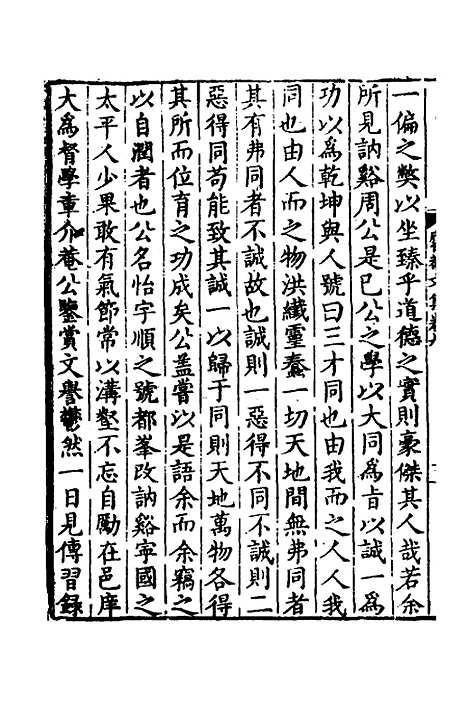 一偏之弊以坐臻乎道德之實則豪傑其人哉若余
所見訥谿周公是已公之學以大同爲旨以誠一爲
功以爲乾坤與人號曰三才同也由我而之人人我
同也由人而之物洪纖靈蠢一切天地間無弗同者
其有弗同者不誠故也誠則一惡得不同不誠則二
惡得同苟能致其誠一以歸于同則天地萬物各得
其所而位育之功成矣公蓋嘗以是語余而余竊之
以自潤者也公名怡字順之號都峯改訥谿寧國之
太平人少果敢有氣節常以溝壑不忘自勵在邑庠
大爲督學章介菴公鑒賞文譽鬱然一日見傳習錄